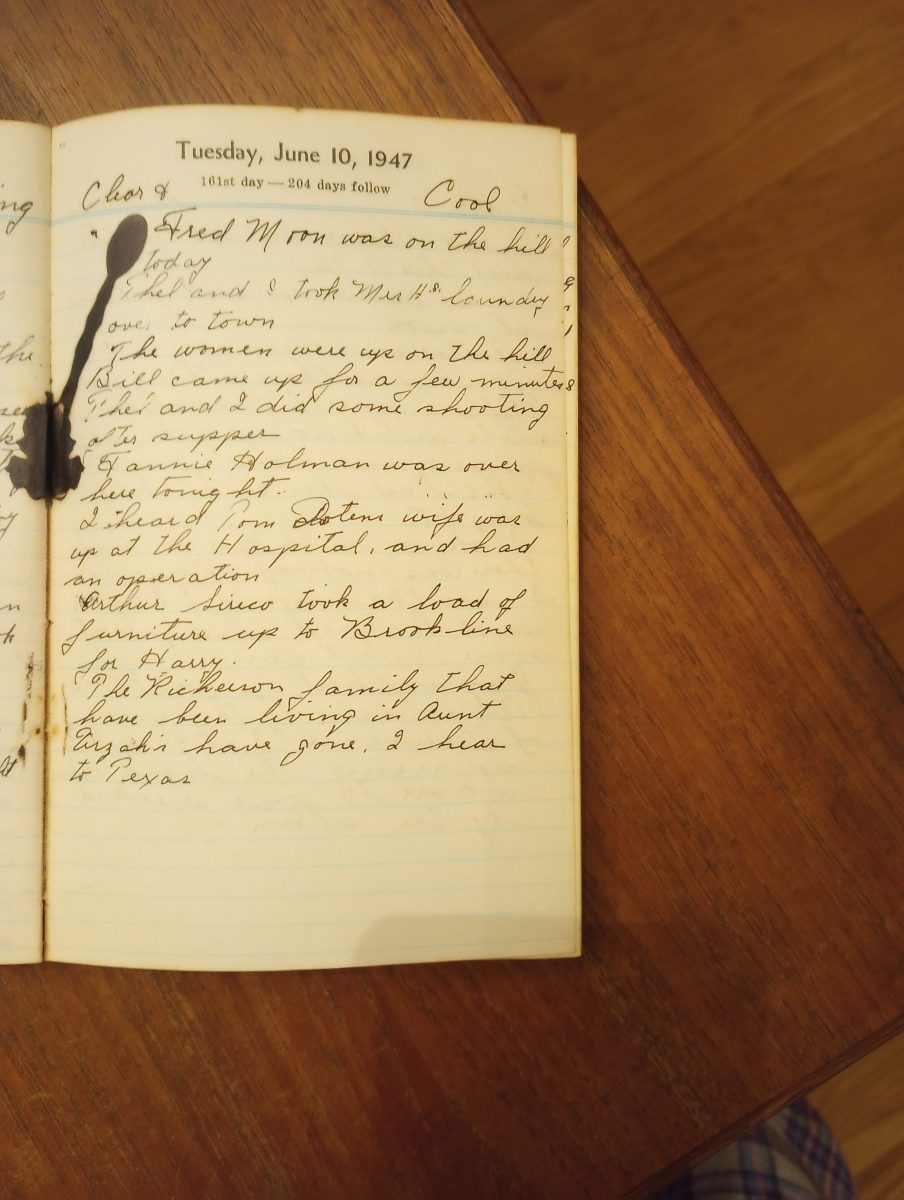 Tuesday, June 10, 1947
161st day — 204 days follow
Clear & Cool
Fred Moon was on the hill
today
Thel and I took Mrs Hs laundry
over to town
The women were up on the hill
Bill came up for a few minutes
Thel and I did some shooting
after supper
Fannie Holman was over
here tonight.
I heard Tom wife was
up at the Hospital, and had
an operation
Arthur took a load of
furniture up to Brookline
for Harry.
The family that
have been living in Aunt
have gone, I hear
to Texas
ing
the